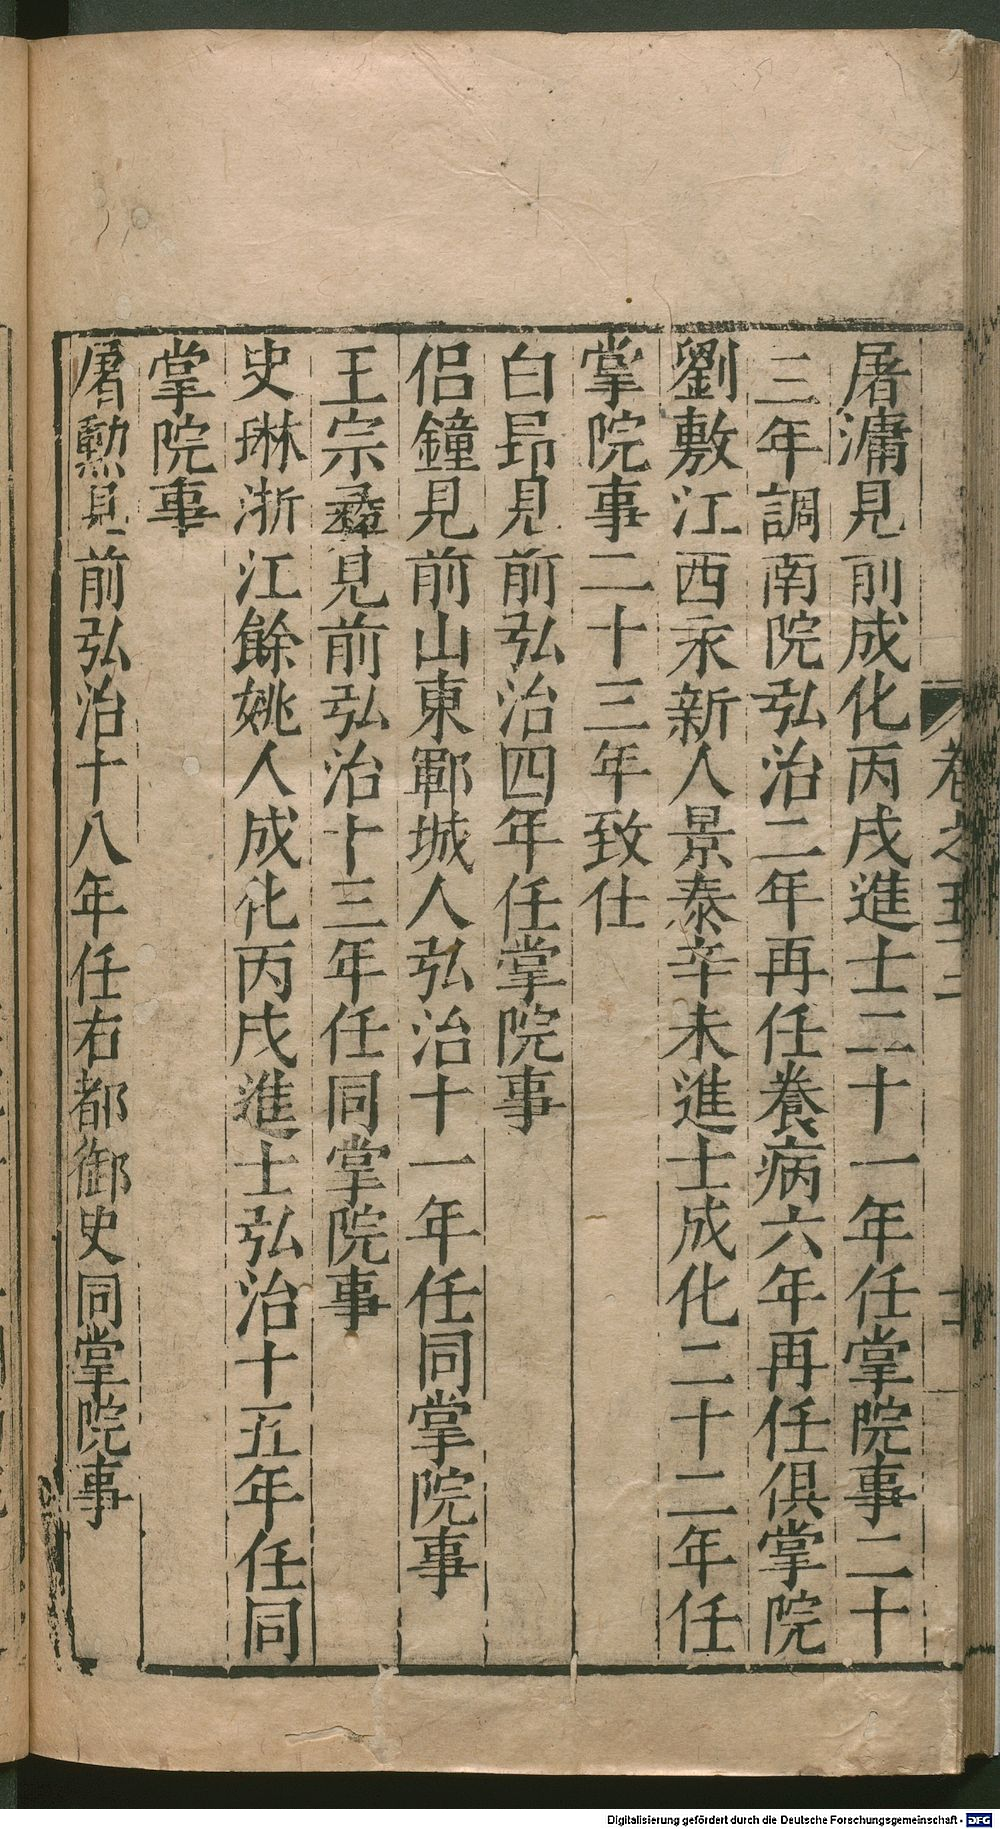 屠滽見前成化丙戌進士二十一年任掌院事二十
三年調南院弘治二年再任養病六年再任俱掌院
劉敷江西永新人景泰辛未進士成化二十二年任
掌院事二十三年致仕
白昻見前弘治四年任掌院事
侣鐘見前山東鄆城人弘治十一年任同掌院事
王宗彞見前弘治十三年任同掌院事
史琳浙江餘姚人成化丙戌進士弘治十五年任同
掌院事
屠勳見前弘治十八年任右都御史同掌院事
Digitalisierung gefördert durch die Deutsche Forschungsgemeinschaft - DFG